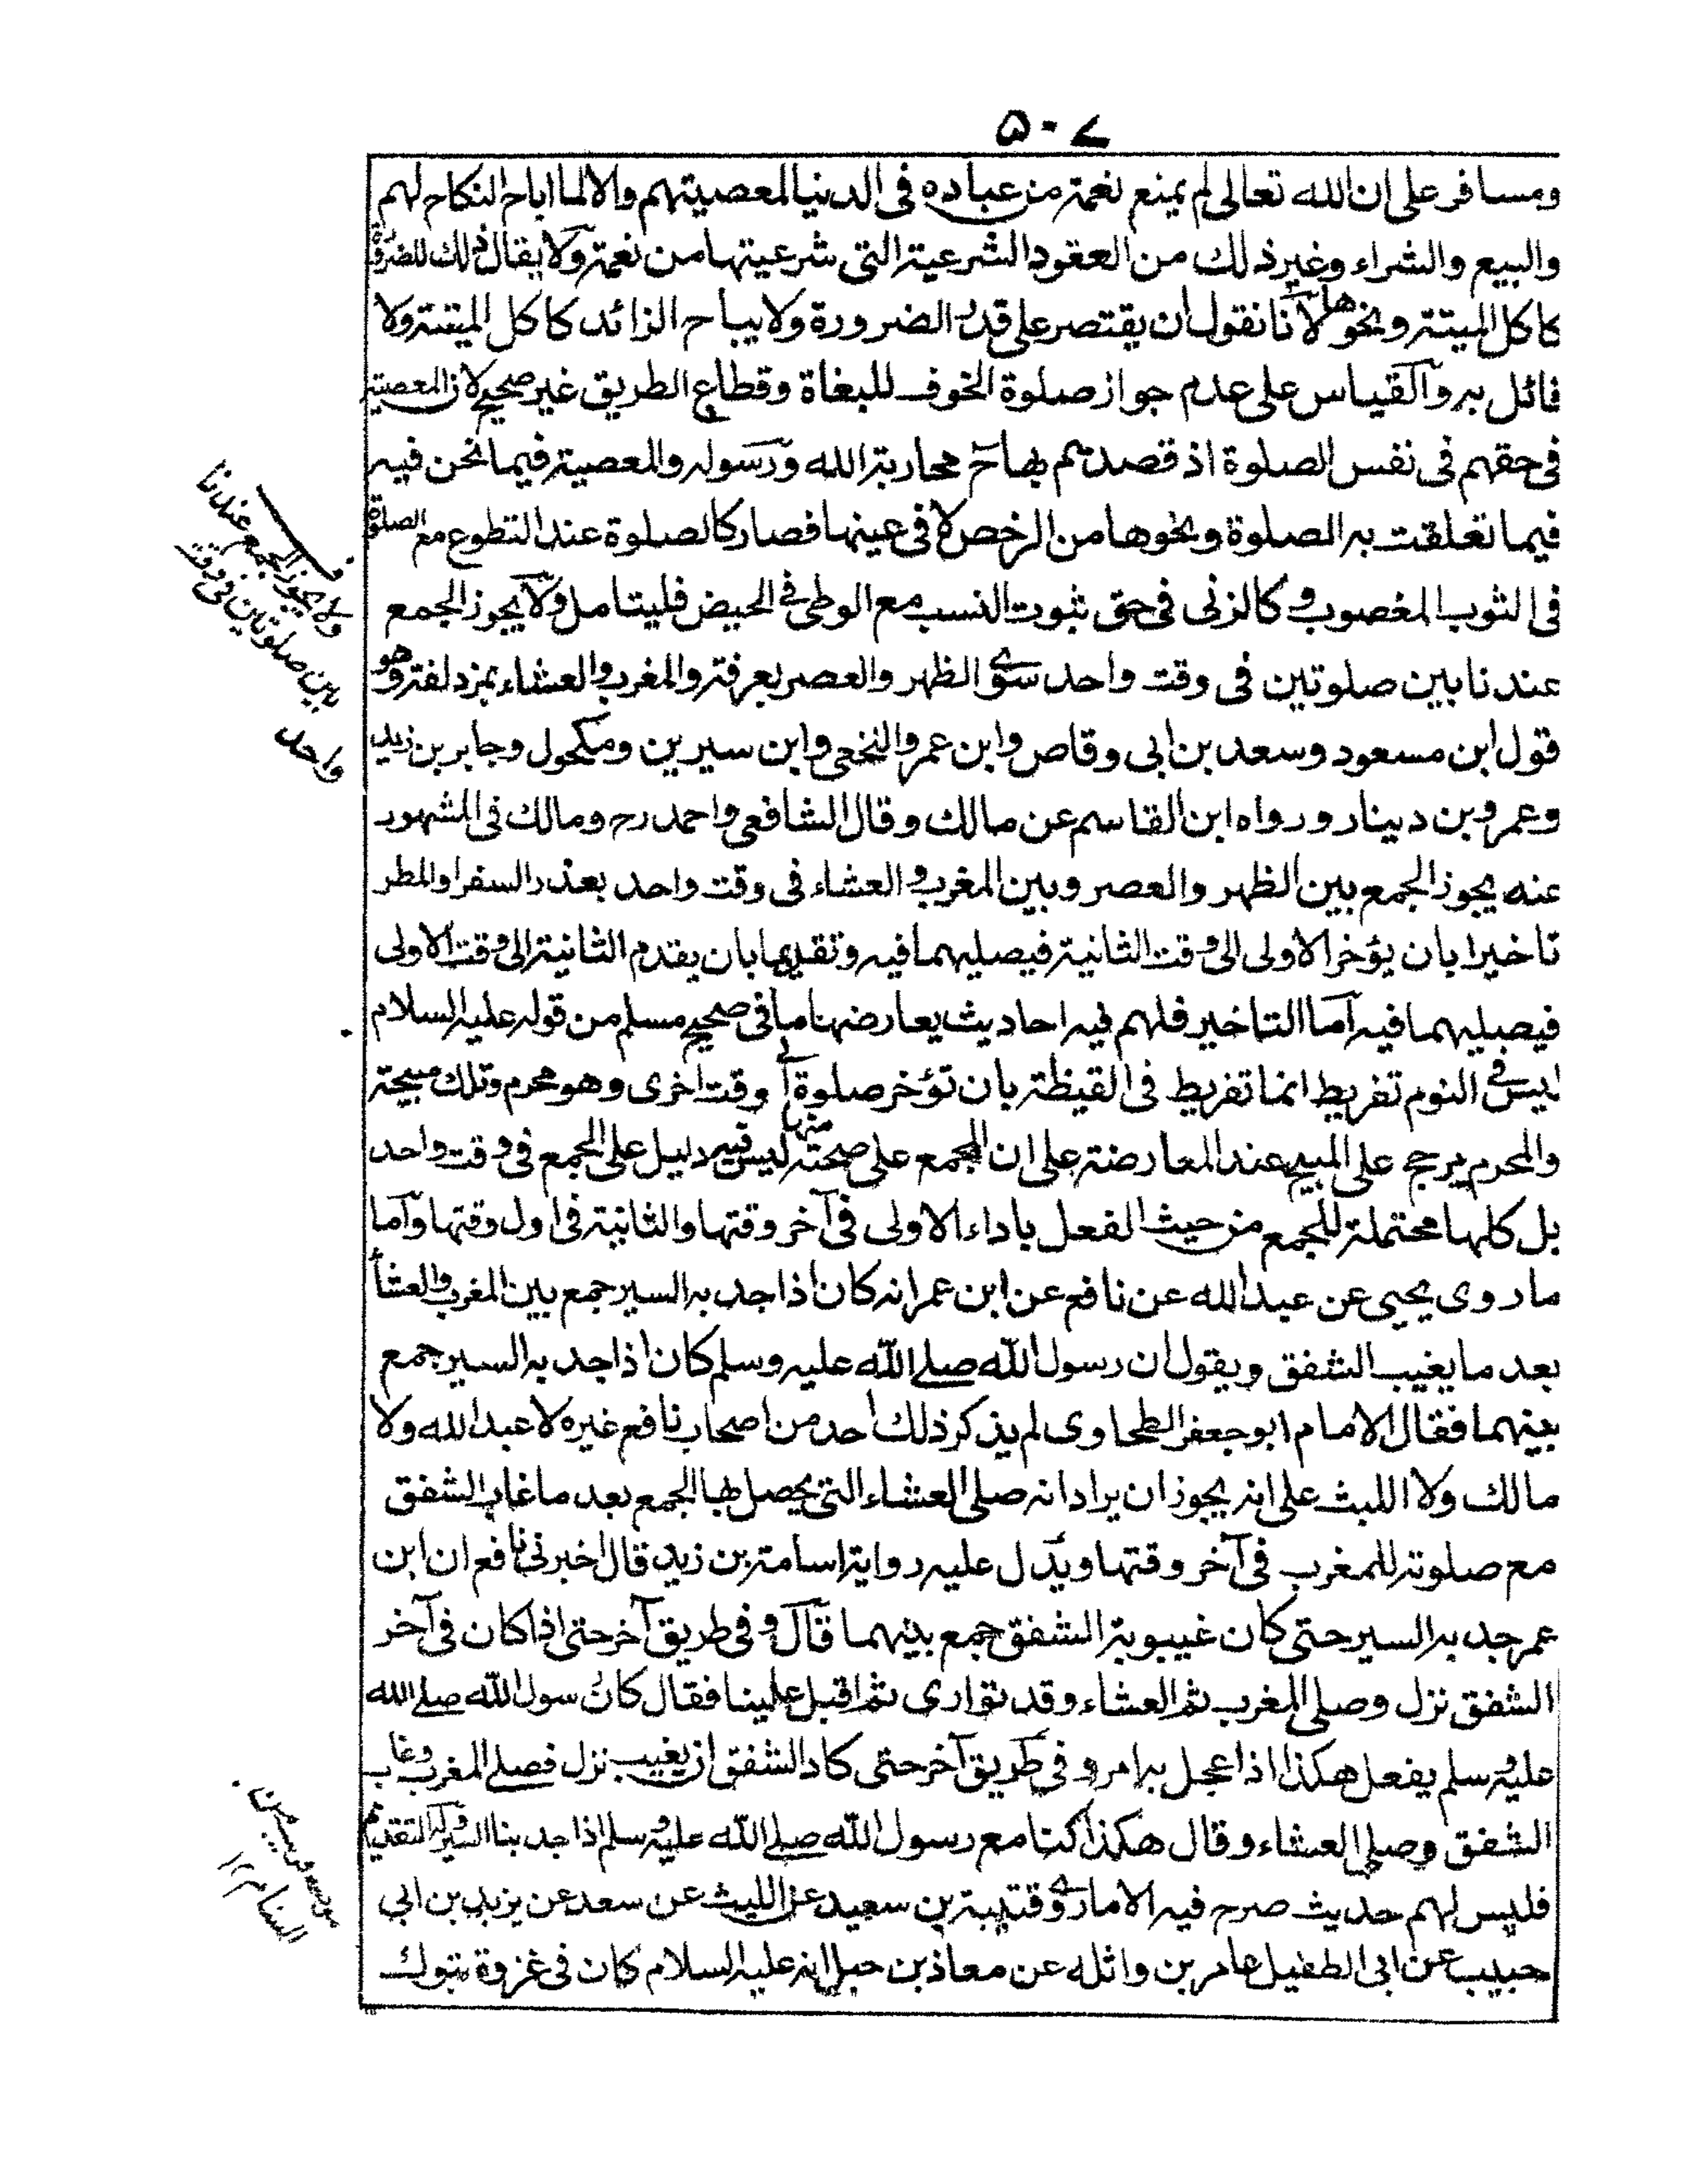 ۵۰۷
ومسافر على ان الله تعالى لم يمنع نعمة من عباده فى الدنيا لمعصيتهم والا لما اباح النكاح لهم
والبيع والشراء وغير ذلك من العقود الشرعية التى شرعيتها من نعمة ولا يقال ذلك للضرورة
كاكل الميتة ونحوها لانا نقول ان يقتصر على قدر الضرورة ولا يباح الزائد كاكل الميتة ولا
قائل به والقياس على عدم جواز صلوة الخوف للبغاة وقطاع الطريق غير صحيح لان المعصية
فى حقهم فى نفس الصلوة اذ قصدهم بها ح محاربة الله ورسوله والمعصية فيما نحن فيه
فيما تعلقت به الصلوة ونحوها من الرخص لا فى عينها فصار كالصلوة عند التطوع مع الصلوة
فى الثوب المغصوب وكالزنى فى حق ثبوت النسب مع الوطى فى الحيض فليتامل ولا يجوز الجمع
عندنا بين صلوتين فى وقت واحد سوى الظهر والعصر بعرفة والمغرب والعشاء بمزدلفة وهو
قول ابن مسعود وسعد بن ابى وقاص وابن عمر والنخعى وابن سيرين ومكحول وجابر بن زيد
وعمرو بن دينار ورواه ابن القاسم عن مالك وقال الشافعى واحمد رح ومالك فى المشهور
عنه يجوز الجمع بين الظهر والعصر وبين المغرب والعشاء فى وقت واحد بعذر السفر او المطر
تاخيرا بان يؤخر الاولى الى وقت الثانية فيصليهما فيه وتقديما بان يقدم الثانية الى وقت الاولى
فيصليهما فيه اما التاخير فلهم فيه احاديث يعارضها ما فى صحيح مسلم من قوله عليه السلام
ليس فى النوم تفريط انما تفريط فى اليقظة بان تؤخر صلوة الى وقت اخرى وهو محرم وتلك مبيحة
والمحرم يرجح على المبيح عند المعارضة على ان المجمع على صحته منها ليس فيه دليل على الجمع فى وقت واحد
بل كلها محتملة للجمع من حيث الفعل باداء الاولى فى آخر وقتها والثانية فى اول وقتها واما
ما روى يحيى عن عبد الله عن نافع عن ابن عمر انه كان اذا جد به السير جمع بين المغرب والعشاء
بعد ما يغيب الشفق ويقول ان رسول الله صلى الله عليه وسلم كان اذا جد به السير جمع
بينهما فقال الامام ابو جعفر الطحاوى لم يذكر ذلك احد من اصحاب نافع غيره لا عبد الله ولا
مالك ولا الليث على انه يجوز ان يراد انه صلى العشاء التى يحصل بها الجمع بعد ما غاب الشفق
مع صلوته للمغرب فى آخر وقتها ويدل عليه رواية اسامة بن زيد قال اخبرنى نافع ان ابن
عمر جد به السير حتى كان غيبوبة الشفق جمع بينهما قال وفى طريق آخر حتى اذا كان فى آخر
الشفق نزل وصلى المغرب ثم العشاء وقد توارى ثم اقبل علينا فقال كان رسول الله صلى الله
عليه وسلم يفعل هكذا اذا عجل به امر وفى طريق آخر حتى كاد الشفق ان يغيب نزل فصلى المغرب وغاب
الشفق وصلى العشاء وقال هكذا كنا مع رسول الله صلى الله عليه وسلم اذا جد بنا السير واما التقديم
فليس لهم حديث صرح فيه الا ما روى قتيبة بن سعيد عن الليث عن سعد عن يزيد بن ابى
حبيب عن ابى الطفيل عامر بن واثلة عن معاذ بن جبل انه عليه السلام كان فى غزوة تبوك
ولا يجوز الجمع عندنا
بين صلوتين فى وقت
واحد